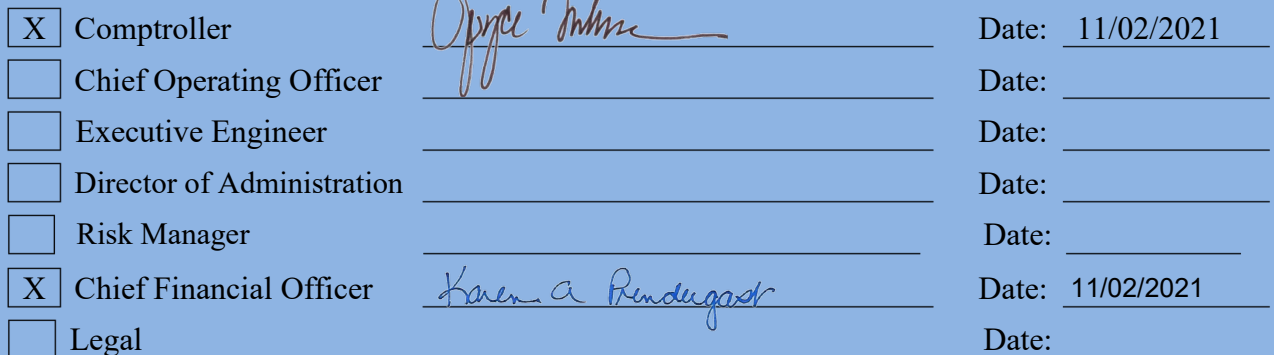 X Comptroller Joyce Date: 11/02/2021
Chief Operating Officer Date:
Executive Engineer Date:
Director of Administration Date:
Risk Manager Date:
X Chief Financial Officer Karen A Prendergast Date: 11/02/2021
Legal Date: